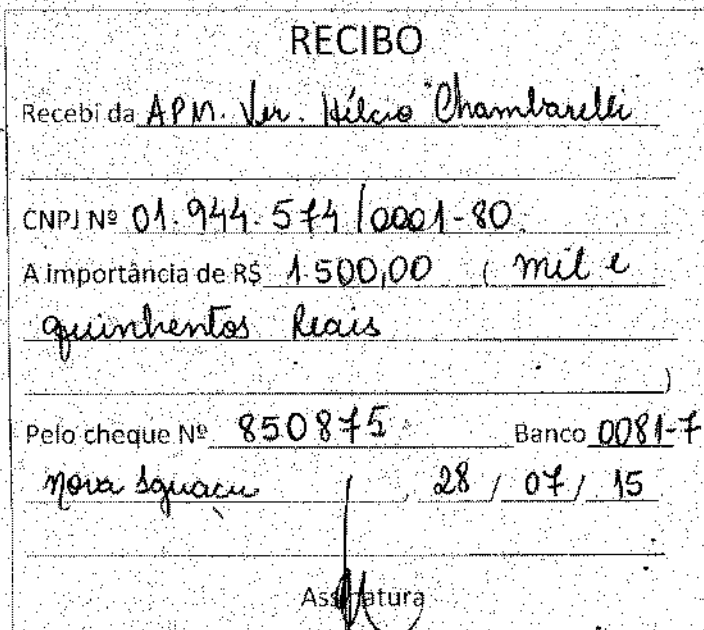 RECIBO
Recebi da APM. Ver. Hélcio Chambarelli
CNPJ Nº 01.944.574/0001-80
A importância de R$ 1.500,00 ( mil e
quinhentos Reais
)
Pelo cheque Nº 850875 Banco 0081-7
Nova Iguaçu , 28 / 07 / 15
Assinatura